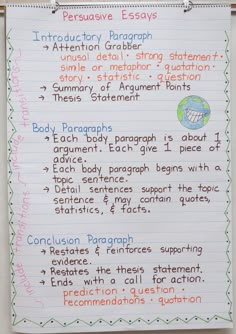 Persuasive Essays
Introductory Paragraph
→ Attention Grabber
unusual detail · strong statement ·
simile or metaphor · quotation ·
story · statistic · question
→ Summary of Argument Points
→ Thesis Statement
Body Paragraphs
→ Each body paragraph is about 1
argument. Each give 1 piece of
advice.
→ Each body paragraph begins with a
topic sentence.
→ Detail sentences support the topic
sentence & may contain quotes,
statistics, & facts.
Conclusion Paragraph
→ Restates & reinforces supporting
evidence.
→ Restates the thesis statement.
→ Ends with a call for action.
prediction · question ·
recommendations · quotation